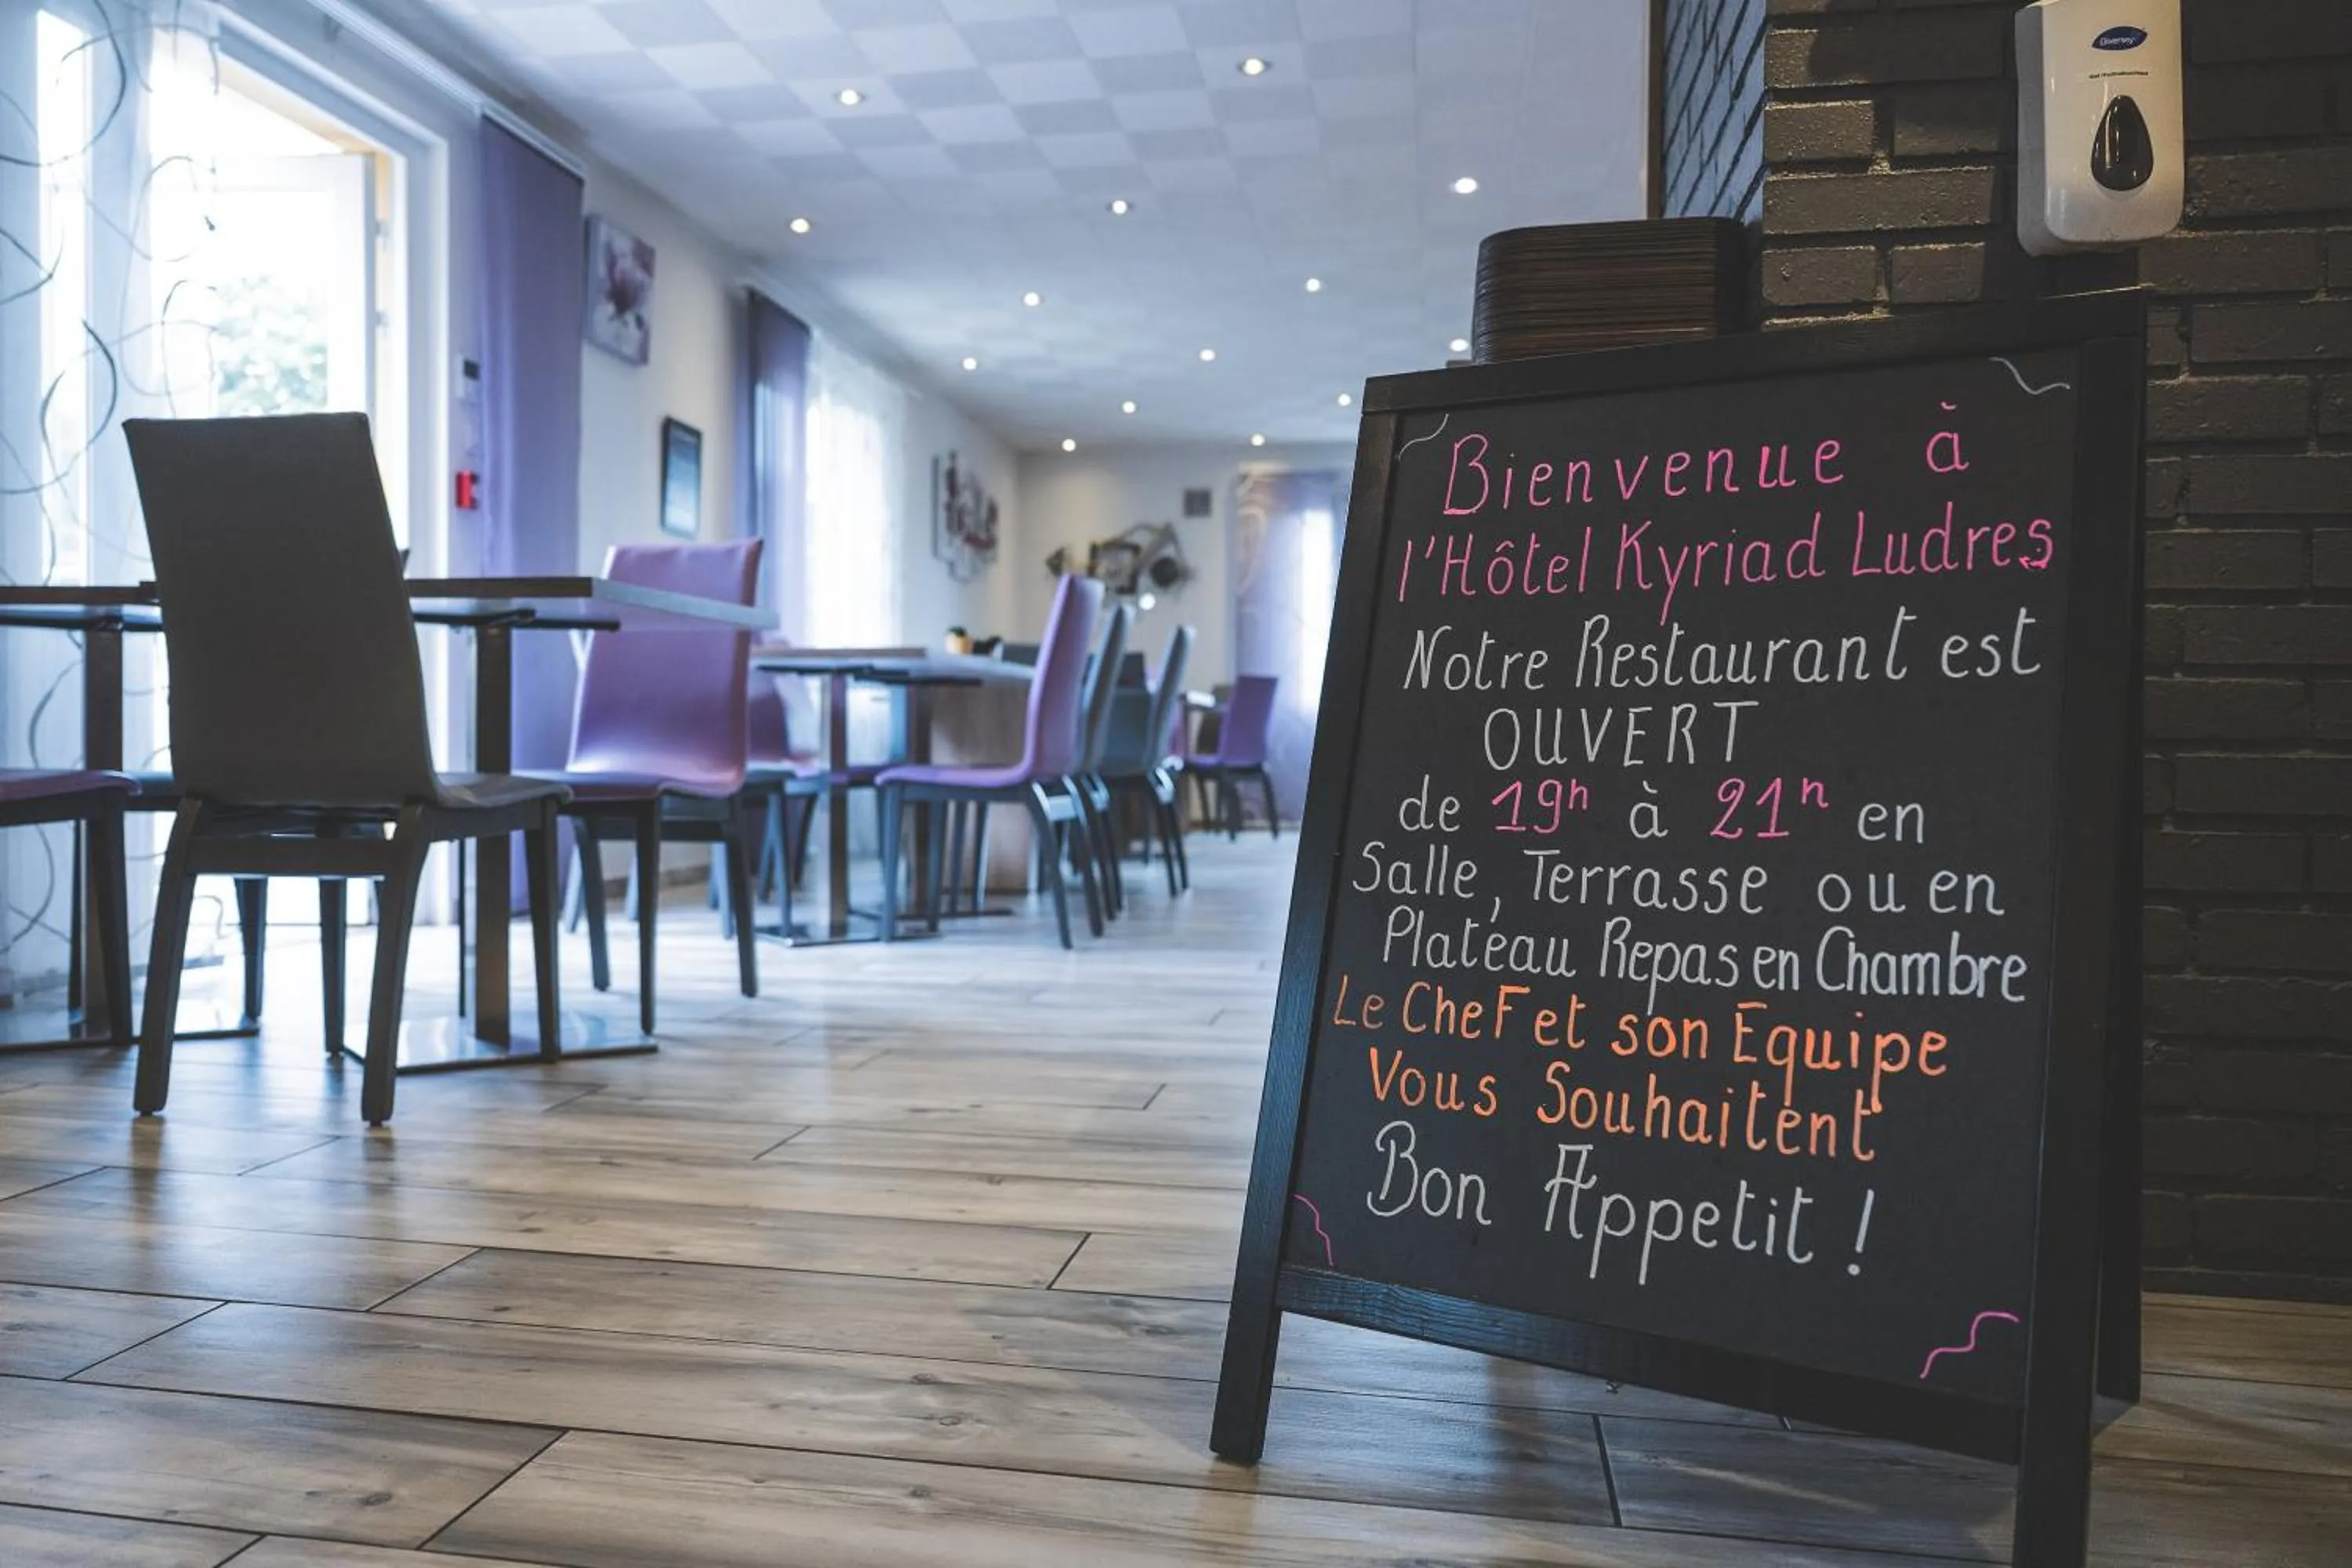 Diversey
Bienvenue à
l'Hôtel Kyriad Ludres
Notre Restaurant est
OUVERT
de 19h à 21h en
Salle, Terrasse ou en
Plateau Repas en Chambre
Le Chef et son Equipe
Vous Souhaitent
Bon Appetit !